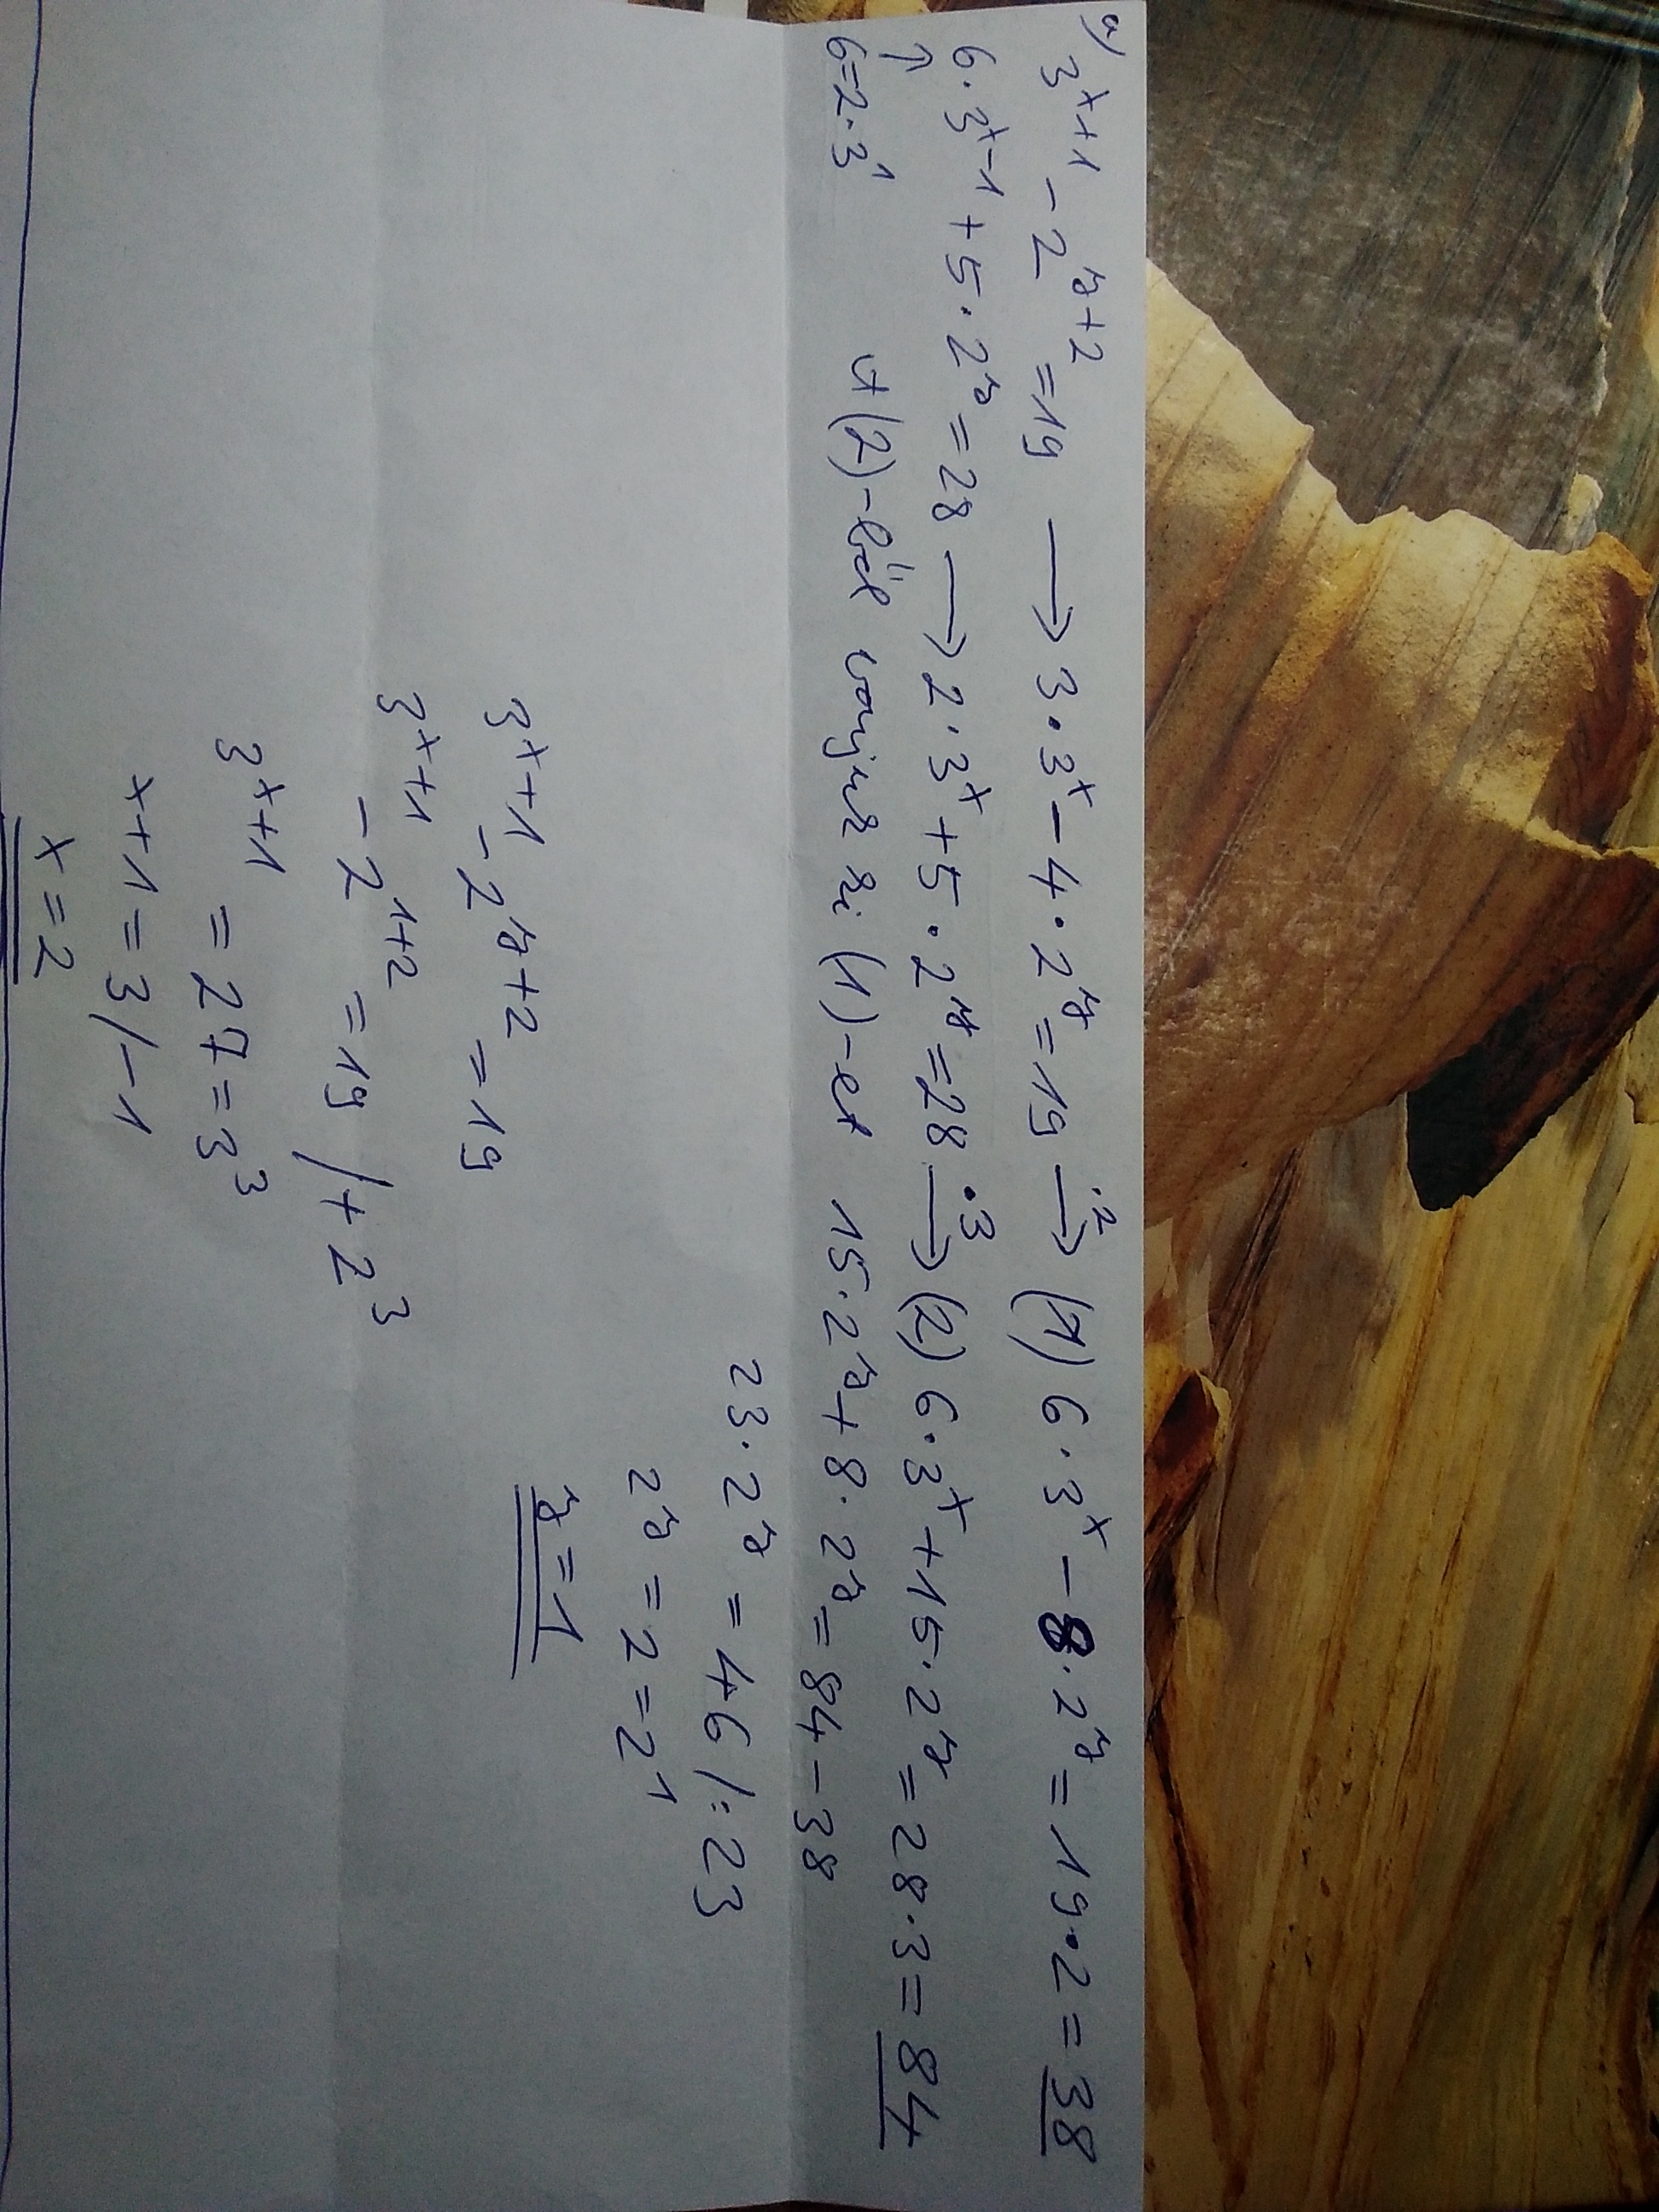 a) 3^(x+1) - 2^(y+2) = 19 → 3·3^x - 4·2^y = 19 →^(·2) (1) 6·3^x - 8·2^y = 19·2 = 38
6·3^(x-1) + 5·2^y = 28 → 2·3^x + 5·2^y = 28 →^(·3) (2) 6·3^x + 15·2^y = 28·3 = 84
↑
6=2·3^1 A (2)-ből vonjuk ki (1)-et 15·2^y + 8·2^y = 84 - 38
23·2^y = 46 /:23
2^y = 2 = 2^1
y = 1
3^(x+1) - 2^(y+2) = 19
3^(x+1) - 2^(1+2) = 19 /+2^3
3^(x+1) = 27 = 3^3
x+1 = 3 /-1
x = 2